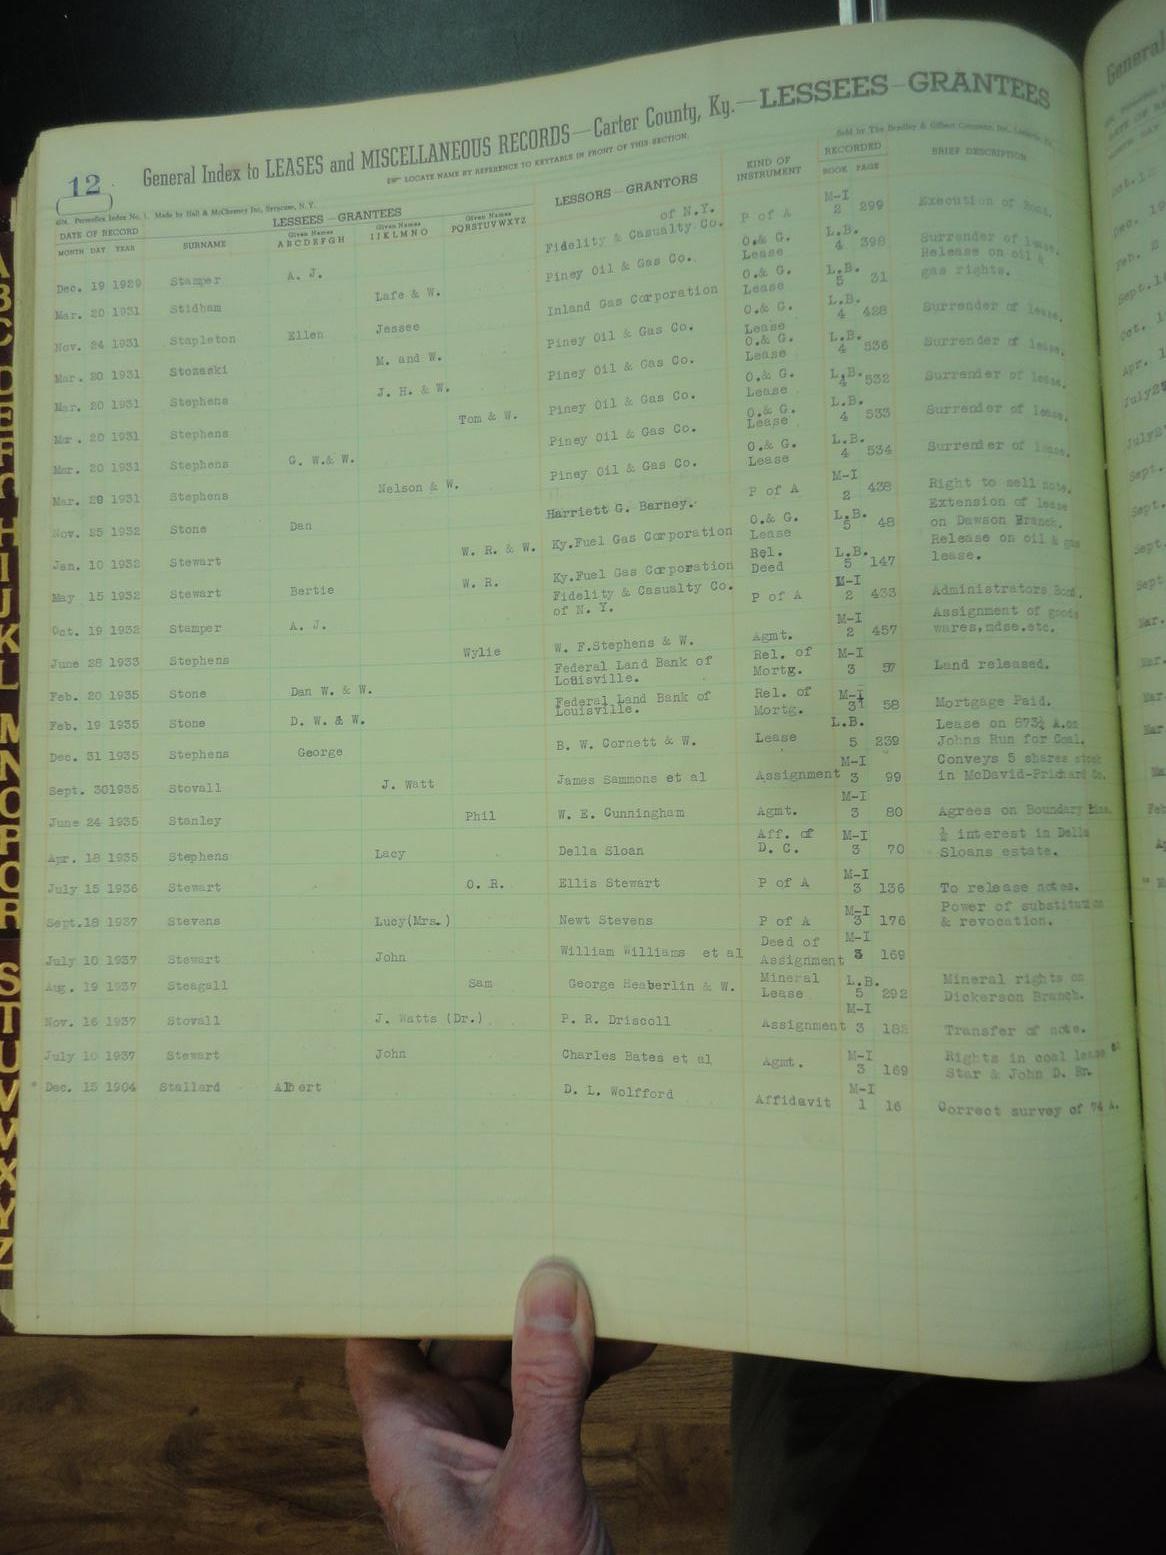 General Index to LEASES and MISCELLANEOUS RECORDS—Carter County, Ky.—LESSEES—GRANTEES
LOCATE NAME BY REFERENCE TO KEYTABLE IN FRONT OF THIS SECTION.
Sold by The Bradley & Gilbert Company, Inc.,
12
Made by Hall & McChesney Inc, Syracuse, N. Y.
DATE OF RECORD LESSEES—GRANTEES LESSORS—GRANTORS KIND OF INSTRUMENT RECORDED BRIEF DESCRIPTION
MONTH DAY YEAR SURNAME Given Names ABCDEFGH Given Names IJKLMNO Given Names PQRSTUVWXYZ BOOK PAGE
Dec. 19 1929 Stamper A. J. Fidelity & Casualty Co. of N.Y. P of A M-I 2 299 Execution of Bond.
Mar. 20 1931 Stidham Lafe & W. Piney Oil & Gas Co. O.& G. Lease L.B. 4 398 Surrender of lease.
Nov. 24 1931 Stapleton Ellen Jessee Inland Gas Corporation O.& G. Lease L.B. 5 31 Release on oil & gas rights.
Mar. 20 1931 Stozaski M. and W. Piney Oil & Gas Co. O.& G. Lease L.B. 4 428 Surrender of lease.
Mar. 20 1931 Stephens J. H. & W. Piney Oil & Gas Co. O.& G. Lease L.B. 4 536 Surrender of lease.
Mar. 20 1931 Stephens Tom & W. Piney Oil & Gas Co. O.& G. Lease L.B. 4 532 Surrender of lease.
Mar. 20 1931 Stephens G. W.& W. Piney Oil & Gas Co. O.& G. Lease L.B. 4 533 Surrender of lease.
Mar. 20 1931 Stephens Nelson & W. Piney Oil & Gas Co. O.& G. Lease L.B. 4 534 Surrender of lease.
Nov. 25 1932 Stone Dan Harriett G. Barney. P of A M-I 2 438 Right to sell note.
Jan. 10 1932 Stewart W. R. & W. Ky.Fuel Gas Corporation O.& G. Lease L.B. 5 48 Extension of lease on Dawson Branch.
May 15 1932 Stewart Bertie W. R. Ky.Fuel Gas Corporation Rel. Deed L.B. 5 147 Release on oil & gas lease.
Oct. 19 1932 Stamper A. J. Fidelity & Casualty Co. of N. Y. P of A M-I 2 433 Administrators Bond.
June 28 1933 Stephens Wylie W. F.Stephens & W. Agmt. M-I 2 457 Assignment of goods wares,mdse.etc.
Feb. 20 1935 Stone Dan W. & W. Federal Land Bank of Louisville. Rel. of Mortg. M-I 3 57 Land released.
Feb. 19 1935 Stone D. W. & W. Federal Land Bank of Louisville. Rel. of Mortg. M-I 3 58 Mortgage Paid.
Dec. 31 1935 Stephens George B. W. Cornett & W. Lease L.B. 5 239 Lease on 873½ A.on Johns Run for Coal.
Sept. 301935 Stovall J. Watt James Sammons et al Assignment M-I 3 99 Conveys 5 shares stock in McDavid-Prichard Co.
June 24 1935 Stanley Phil W. E. Cunningham Agmt. M-I 3 80 Agrees on Boundary line.
Apr. 18 1935 Stephens Lacy Della Sloan Aff. of D. C. M-I 3 70 ½ interest in Della Sloans estate.
July 15 1936 Stewart O. R. Ellis Stewart P of A M-I 3 136 To release notes.
Sept.18 1937 Stevens Lucy(Mrs.) Newt Stevens P of A M-I 3 176 Power of substitution & revocation.
July 10 1937 Stewart John William Williams et al Deed of Assignment M-I 3 169
Aug. 19 1937 Steagall Sam George Heaberlin & W. Mineral Lease L.B. 5 292 Mineral rights on Dickerson Branch.
Nov. 16 1937 Stovall J. Watts (Dr.) P. R. Driscoll Assignment M-I 3 Transfer of note.
July 10 1937 Stewart John Charles Bates et al Agmt. M-I 3 169 Rights in coal lease Star & John D. Br.
* Dec. 15 1904 Stallard Albert D. L. Wolfford Affidavit M-I 1 16 Correct survey of 74 A.